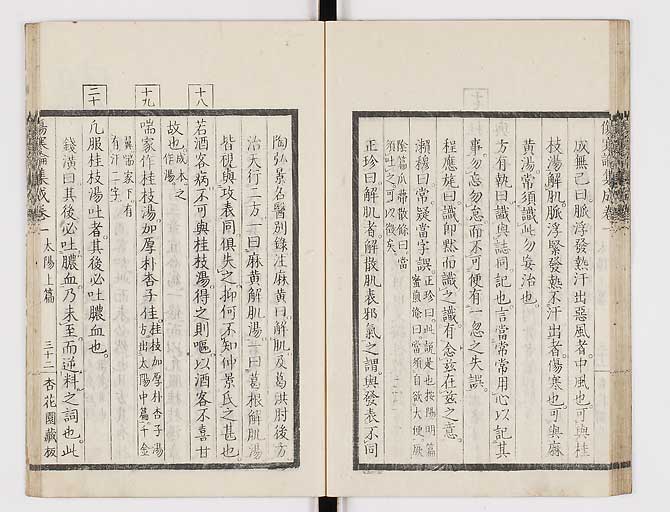 傷寒論集成卷一
成無己曰脈浮發熱汗出惡風者中風也可與桂
枝湯解肌脈浮緊發熱不汗出者傷寒也可與麻
黃湯常須識此勿妄治也
方有執曰識與誌同記也言當常常用心以記其
事勿忘勿怠而不可使有一忽之失誤
程應旄曰識卽默而識之識有念玆在玆之意
瀨穆曰常疑當字誤
正珍曰此說是也按陽明篇
蜜煎條曰當須自欲大便厥
陰篇瓜蔕散條曰當
須吐之可以徵矣
正珍曰解肌者解散肌表邪氣之謂與發表不同
陶弘景名醫別錄注麻黃曰解肌及葛洪肘後方
治天行二方一曰麻黃解肌湯一曰葛根解肌湯
皆禔與攻表同俱失之抑何不知仲景氏之甚也
十八
若酒客病不可與桂枝湯得之則嘔以酒客不喜甘
故也
成本
作湯之
十九
喘家作桂枝湯加厚朴杏子佳
桂枝加厚朴杏子湯
方出太陽中篇千金
翼喘家下有
有汗二字
二十
凡服桂枝湯吐者其後必吐膿血也
錢潢曰其後必吐膿血乃未至而逆料之詞也此
傷寒論集成卷一 太陽上篇 三十二 杏花園藏板